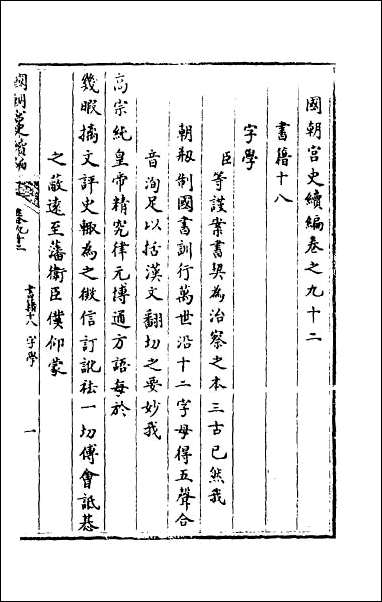 國朝宮史續編卷之九十二
書籍十八
字學
臣等謹案書契為治察之本三古已然我
朝刱制國書訓行萬世沿十二字母得五聲合
音洵足以括漢文翻切之要妙我
高宗純皇帝精究律元博通方語每於
幾暇摛文評史輙為之徵信訂訛袪一切傅會詆諆
之蔽遠至藩衛臣僕仰蒙
國朝宮史續編
卷九十二
書籍十八 字學
一